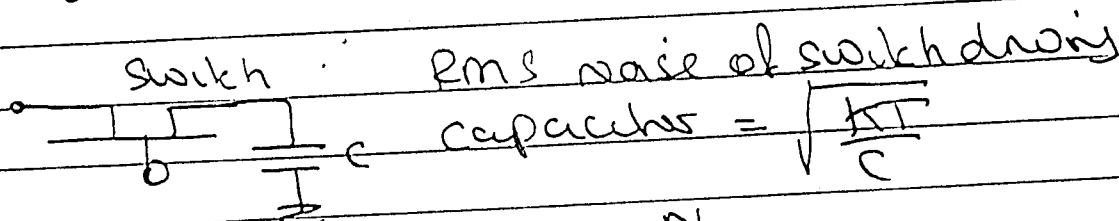 Switch : RMS noise of switch driving
C capacitor = √(KT/C)